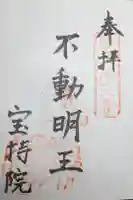 奉拝
不動明王
宝持院